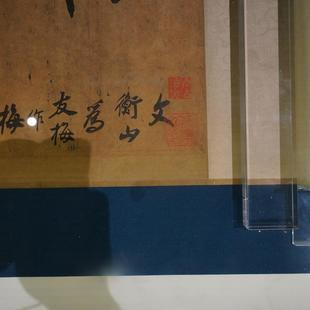 文
衡山
為
友梅
作
梅